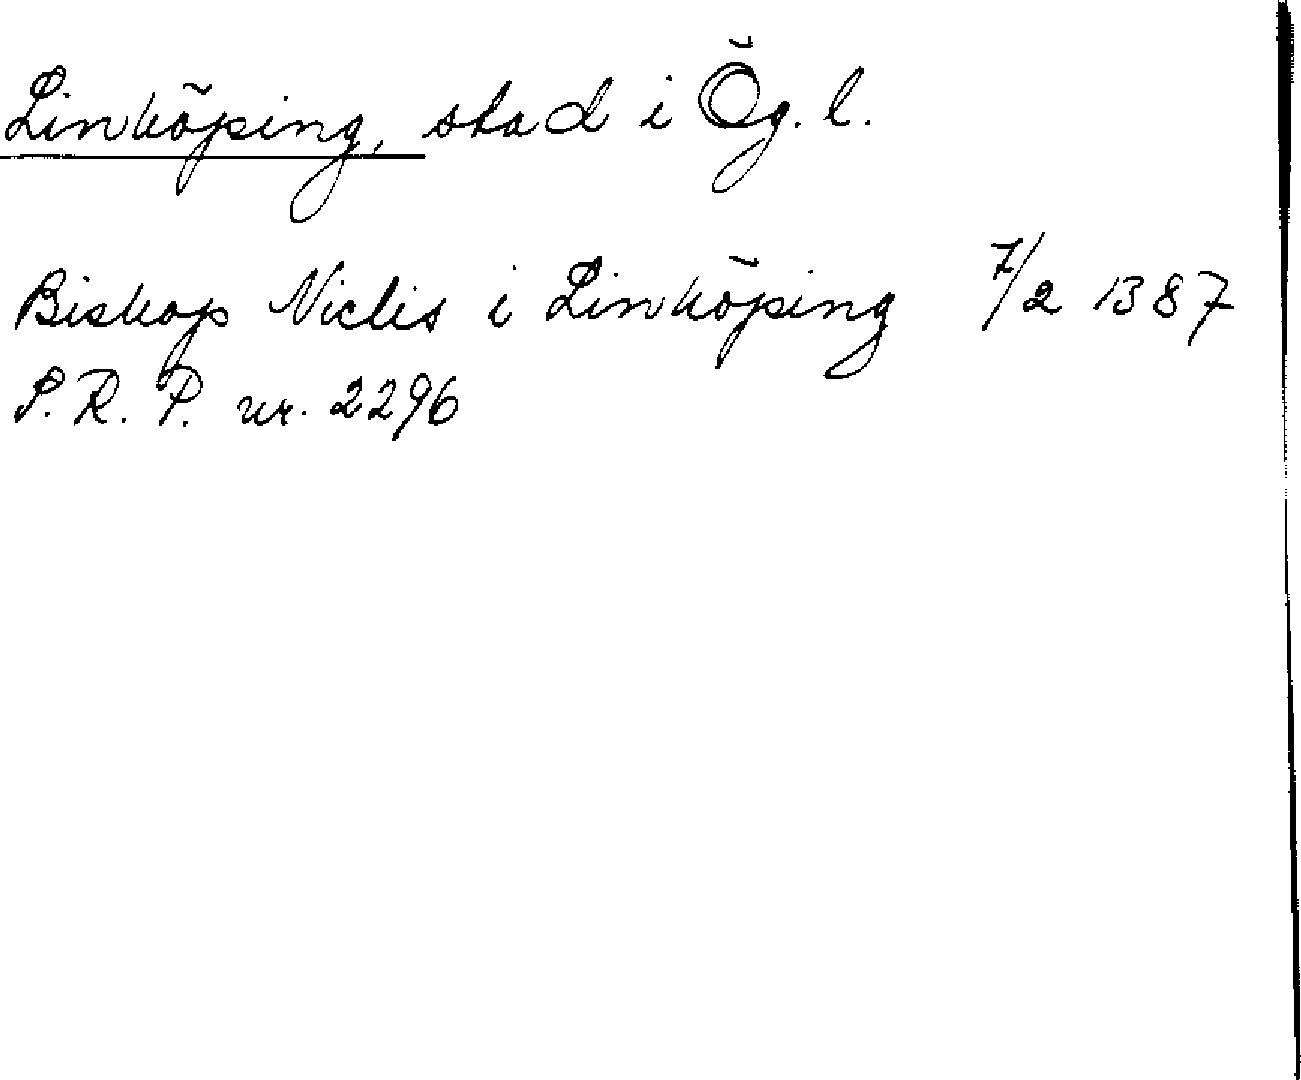 Linköping, stad i Ög. l.
Biskop Niclis i Linköping 7/2 1387
S. R. P. nr. 2296